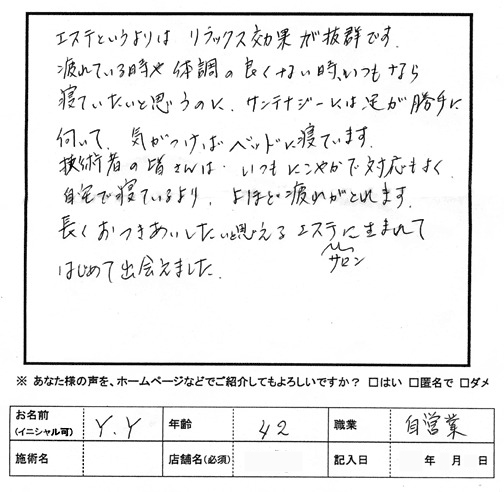 エステというよりは リラックス効果が抜群です.
疲れている時や体調の良くない時、いつもなら
寝ていたいと思うのに、サンテナジーには足が勝手に
向いて、気がつけばベッドに寝ています.
技術者の皆さんは、いつもにこやかで対応もよく、
自宅で寝ているより、よほど疲れがとれます.
長くおつきあいしたいと思えるエステに生まれて
サロン
はじめて出会えました.
※ あなた様の声を、ホームページなどでご紹介してもよろしいですか? □はい □匿名で □ダメ
お名前 (イニシャル可) Y.Y 年齢 42 職業 自営業
施術名 店舗名(必須) 記入日 年 月 日